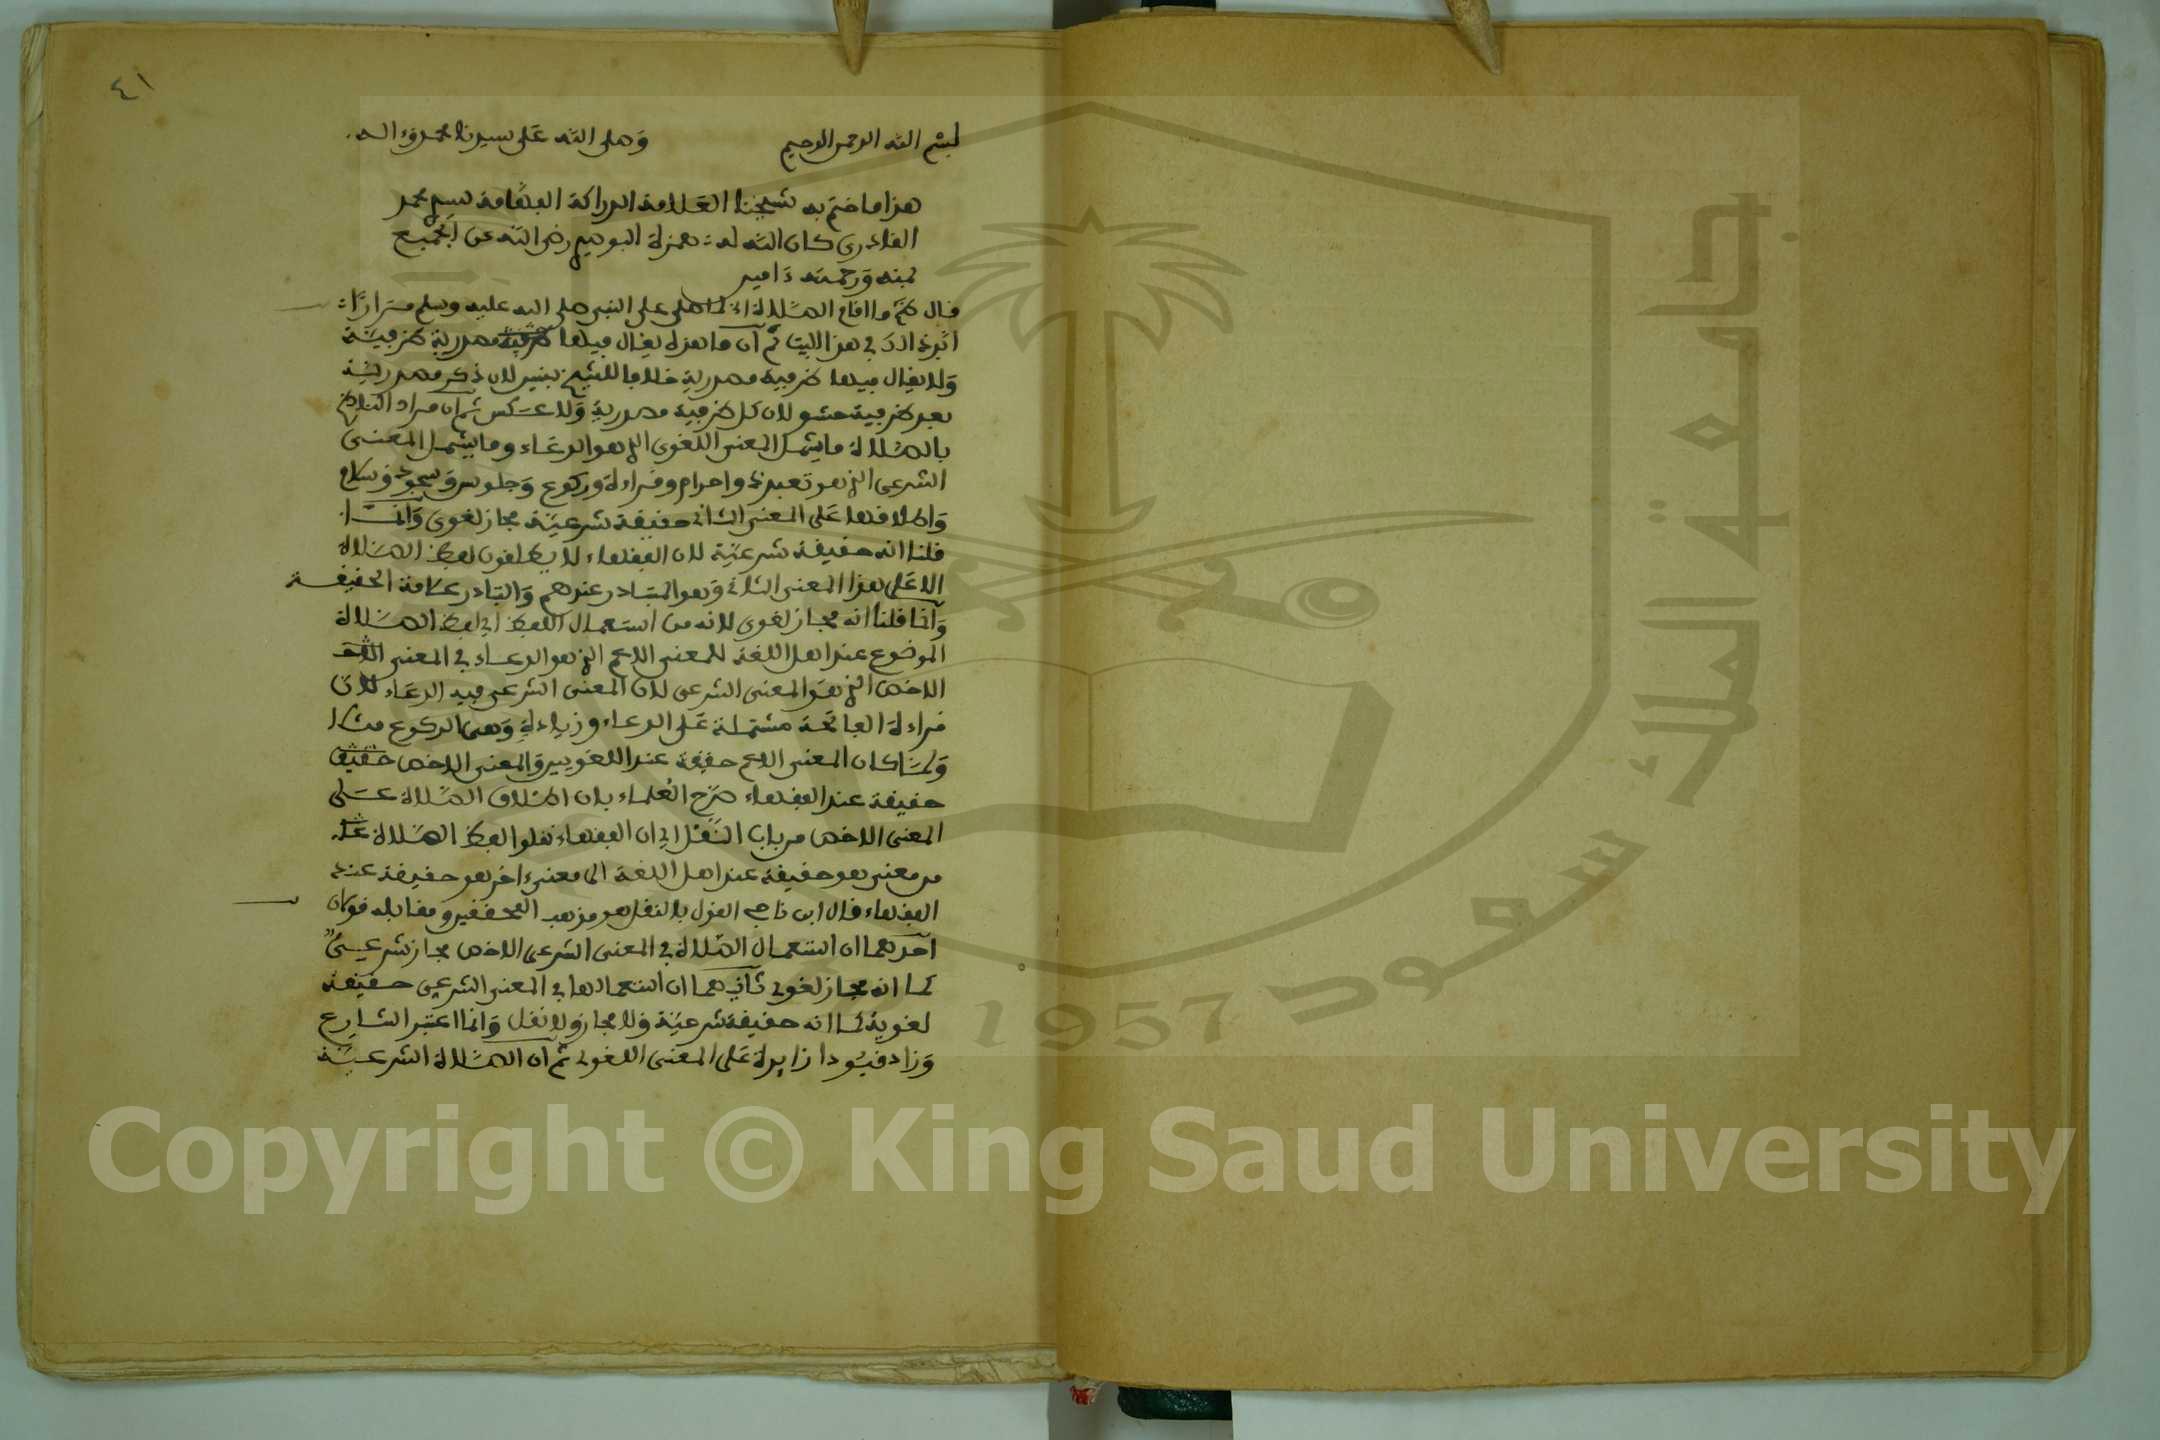 ٤١
بسم الله الرحمن الرحيم وصلى الله على سيدنا محمد وءاله
هذا ما ختم به شيخنا العلامة الدراكة الفهامة سيدي محمد
القادري كان الله له همزية البوصيري رضي الله عن الجميع
بمنه ورحمته ءامين
قال ثم ما اقام الصلاة اي صلى على النبي صلى الله عليه وسلم مرارا
في هذا البيت ثم ان ما هذه يقال فيها مصدرية ظرفية
ولا يقال فيها ظرفية مصدرية خلافا للشيخ بنيس لان ذكر مصدرية
بعد ظرفية حشو لان كل ظرفية مصدرية ولا عكس ثم ان مراد الناظم
بالصلاة ما يشمل المعنى اللغوي الذي هو الدعاء وما يشمل المعنى
الشرعي الذي هو تعبدنا واحرام وقراءة وركوع وجلوس وسجود وسلام
واطلاقها على المعنى الثاني حقيقة شرعية مجاز لغوي وانما
قلنا انه حقيقة شرعية لان الفقهاء لا يطلقون لفظ الصلاة
الا على هذا المعنى الثاني وهو المتبادر عندهم والتبادر علامة الحقيقة
وانما قلنا انه مجاز لغوي لانه من استعمال اللفظ اي لفظ الصلاة
الموضوع عند اهل اللغة للمعنى الاعم الذي هو الدعاء في المعنى
الاخص الذي هو المعنى الشرعي لان المعنى الشرعي فيه الدعاء لان
قراءة الفاتحة مشتملة على الدعاء وزيادة وهي الركوع مثلا
ولما كان المعنى الاعم حقيقة عند اللغويين والمعنى الاخص
حقيقة عند الفقهاء صرح العلماء بان اطلاق الصلاة على
المعنى الاخص من باب النقل اي ان الفقهاء نقلوا لفظ الصلاة
من معنى هو حقيقة عند اهل اللغة الى معنى ءاخر هو حقيقة عند
الفقهاء قال ابن ناجي القول بالنقل هو مذهب المحققين ومقابله قولان
احدهما ان استعمال الصلاة في المعنى الشرعي الاخص مجاز شرعي
كما انه مجاز لغوي ثانيهما ان استعمالها في المعنى الشرعي حقيقة
لغوية كما انه حقيقة شرعية ولا مجاز ولا نقل وانما اعتبر الشارع
وزاد قيودا زايدة على المعنى اللغوي ثم ان الصلاة الشرعية
جامعة الملك سعود
1957
Copyright © King Saud University